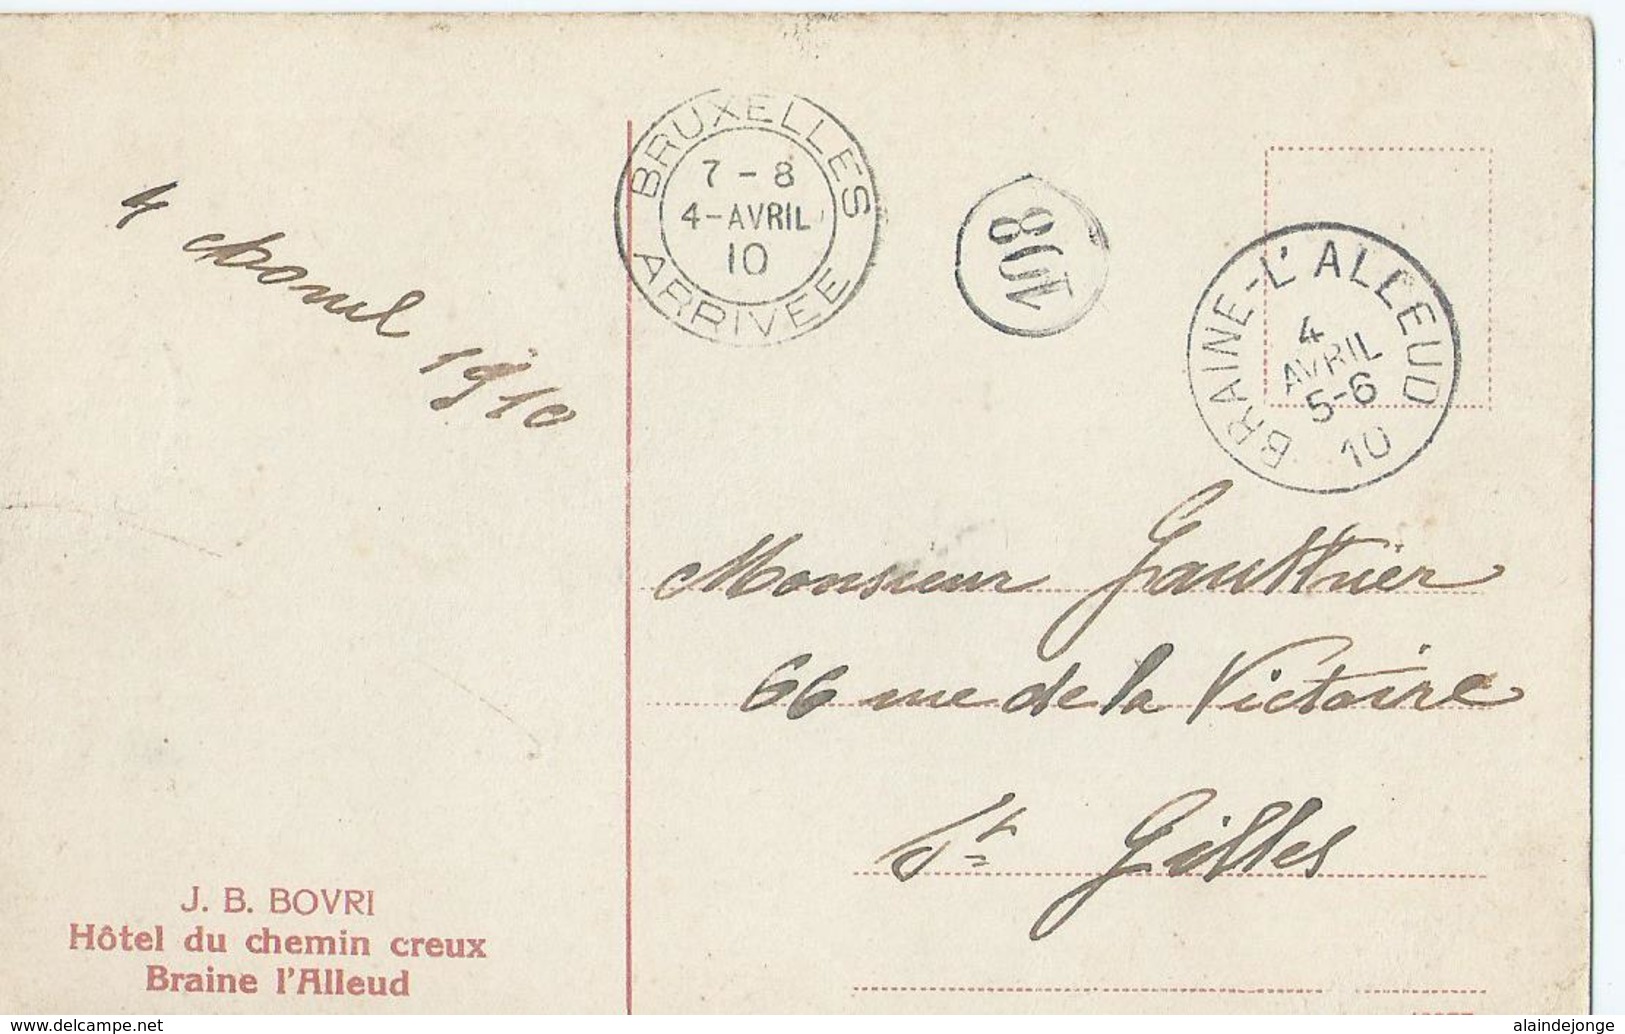 BRUXELLES
7 - 8
4 - AVRIL
10
ARRIVEE
108
BRAINE-L'ALLEUD
4
AVRIL
5-6
10
4 1910
Monsieur Gauthier
66 rue de la Victoire
St Gilles
J. B. BOVRI
Hôtel du chemin creux
Braine l'Alleud
www.delcampe.net
alaindejonge